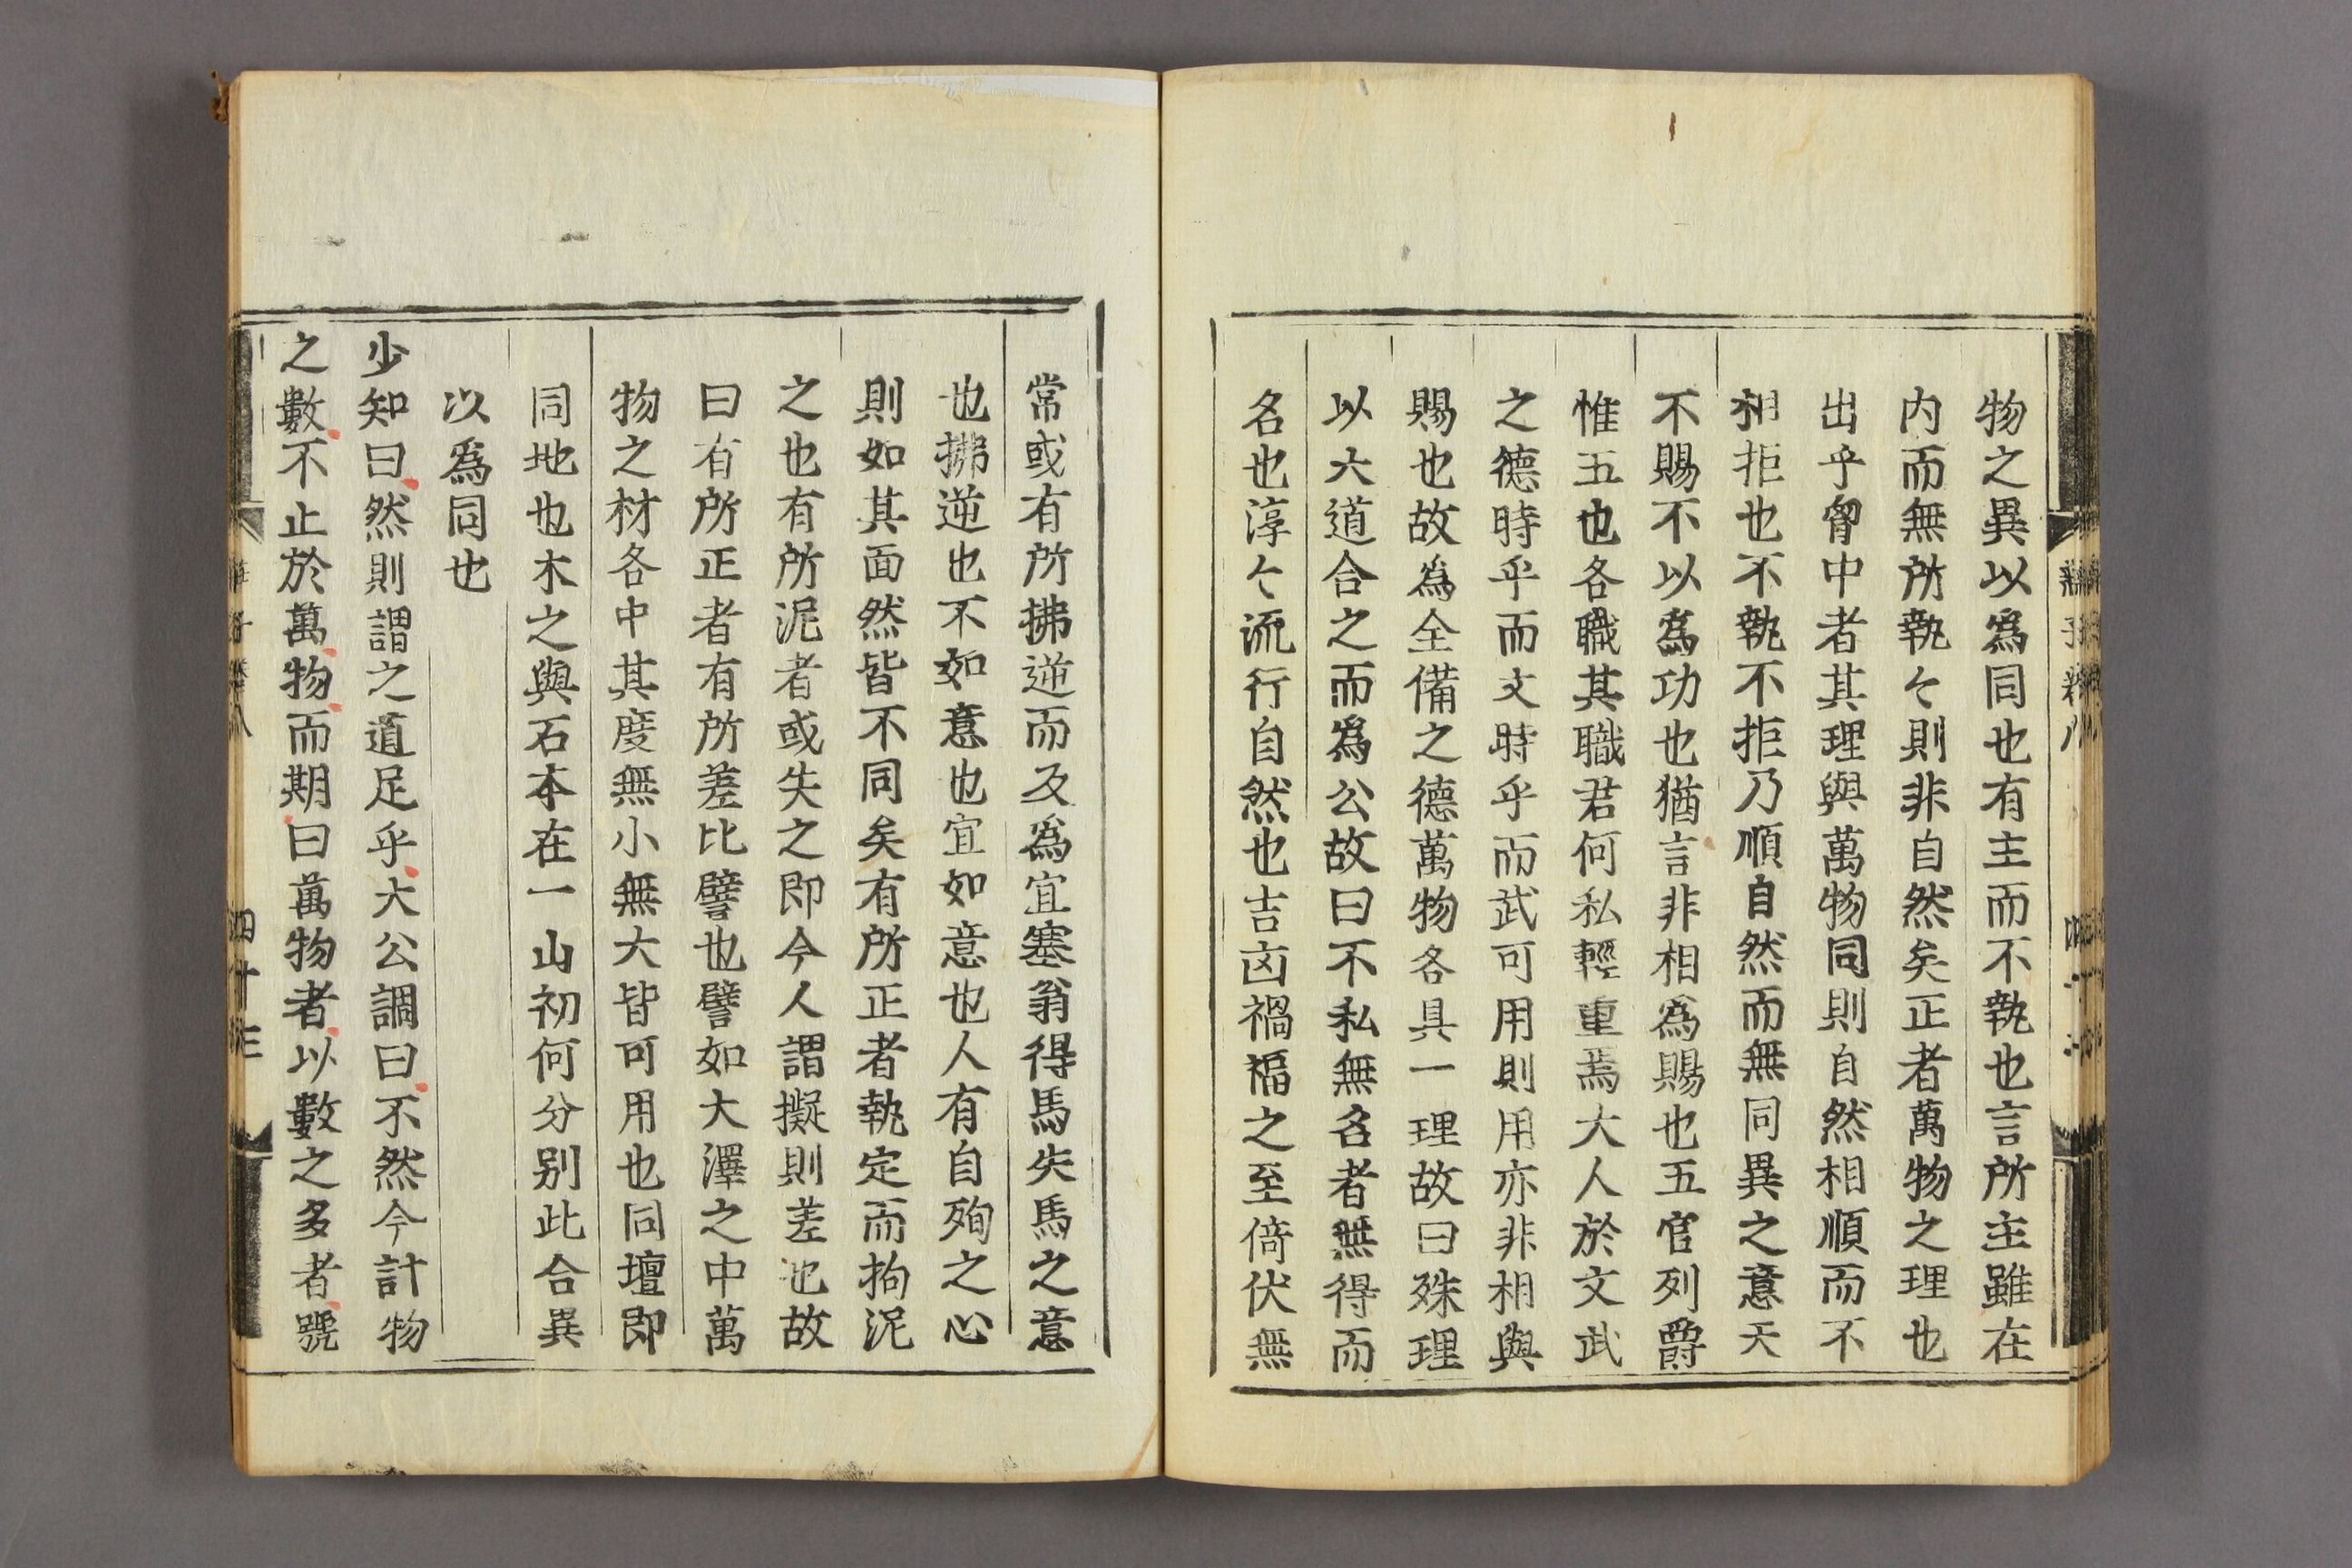 物之異以爲同也有主而不執也言所主雖在
内而無所執々則非自然矣正者萬物之理也
出乎胷中者其理與萬物同則自然相順而不
相拒也不執不拒乃順自然而無同異之意天
不賜不以爲功也猶言非相爲賜也五官列爵
惟五也各職其職君何私輕重焉大人於文武
之德時乎而文時乎而武可用則用亦非相與
賜也故爲全備之德萬物各具一理故曰殊理
以大道合之而爲公故曰不私無名者無得而
名也淳々流行自然也吉凶禍福之至倚伏無
常或有所拂逆而反爲宜塞翁得馬失馬之意
也拂逆也不如意也宜如意也人有自殉之心
則如其面然皆不同矣有所正者執定而拘泥
之也有所泥者或失之即今人謂擬則差也故
曰有所正者有所差比譬也譬如大澤之中萬
物之材各中其度無小無大皆可用也同壇即
同地也木之與石本在一山初何分別此合異
以爲同也
少知曰然則謂之道足乎大公調曰不然今計物
之數不止於萬物而期曰萬物者以數之多者號
四十三